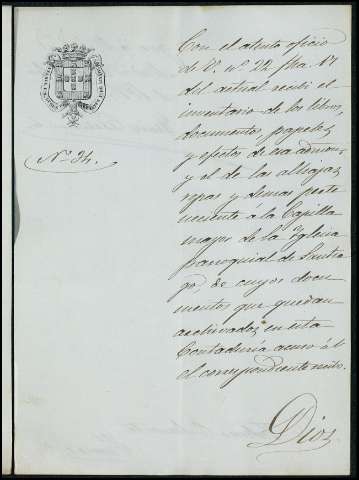 Nº 34.
Con el atento oficio
de V. nº 22 fha 17
del actual recibí el
inventario de los libros,
documentos, papeles
y efectos de esa admon,
y el de las alhajas,
ropas y demas perte
neciente á la Capilla
mayor de la Iglesia
parroquial de Santia
go, de cuyos docu
mentos que quedan
archivados en esta
Contaduría acuso á V.
el correspondiente recibo.
Dios